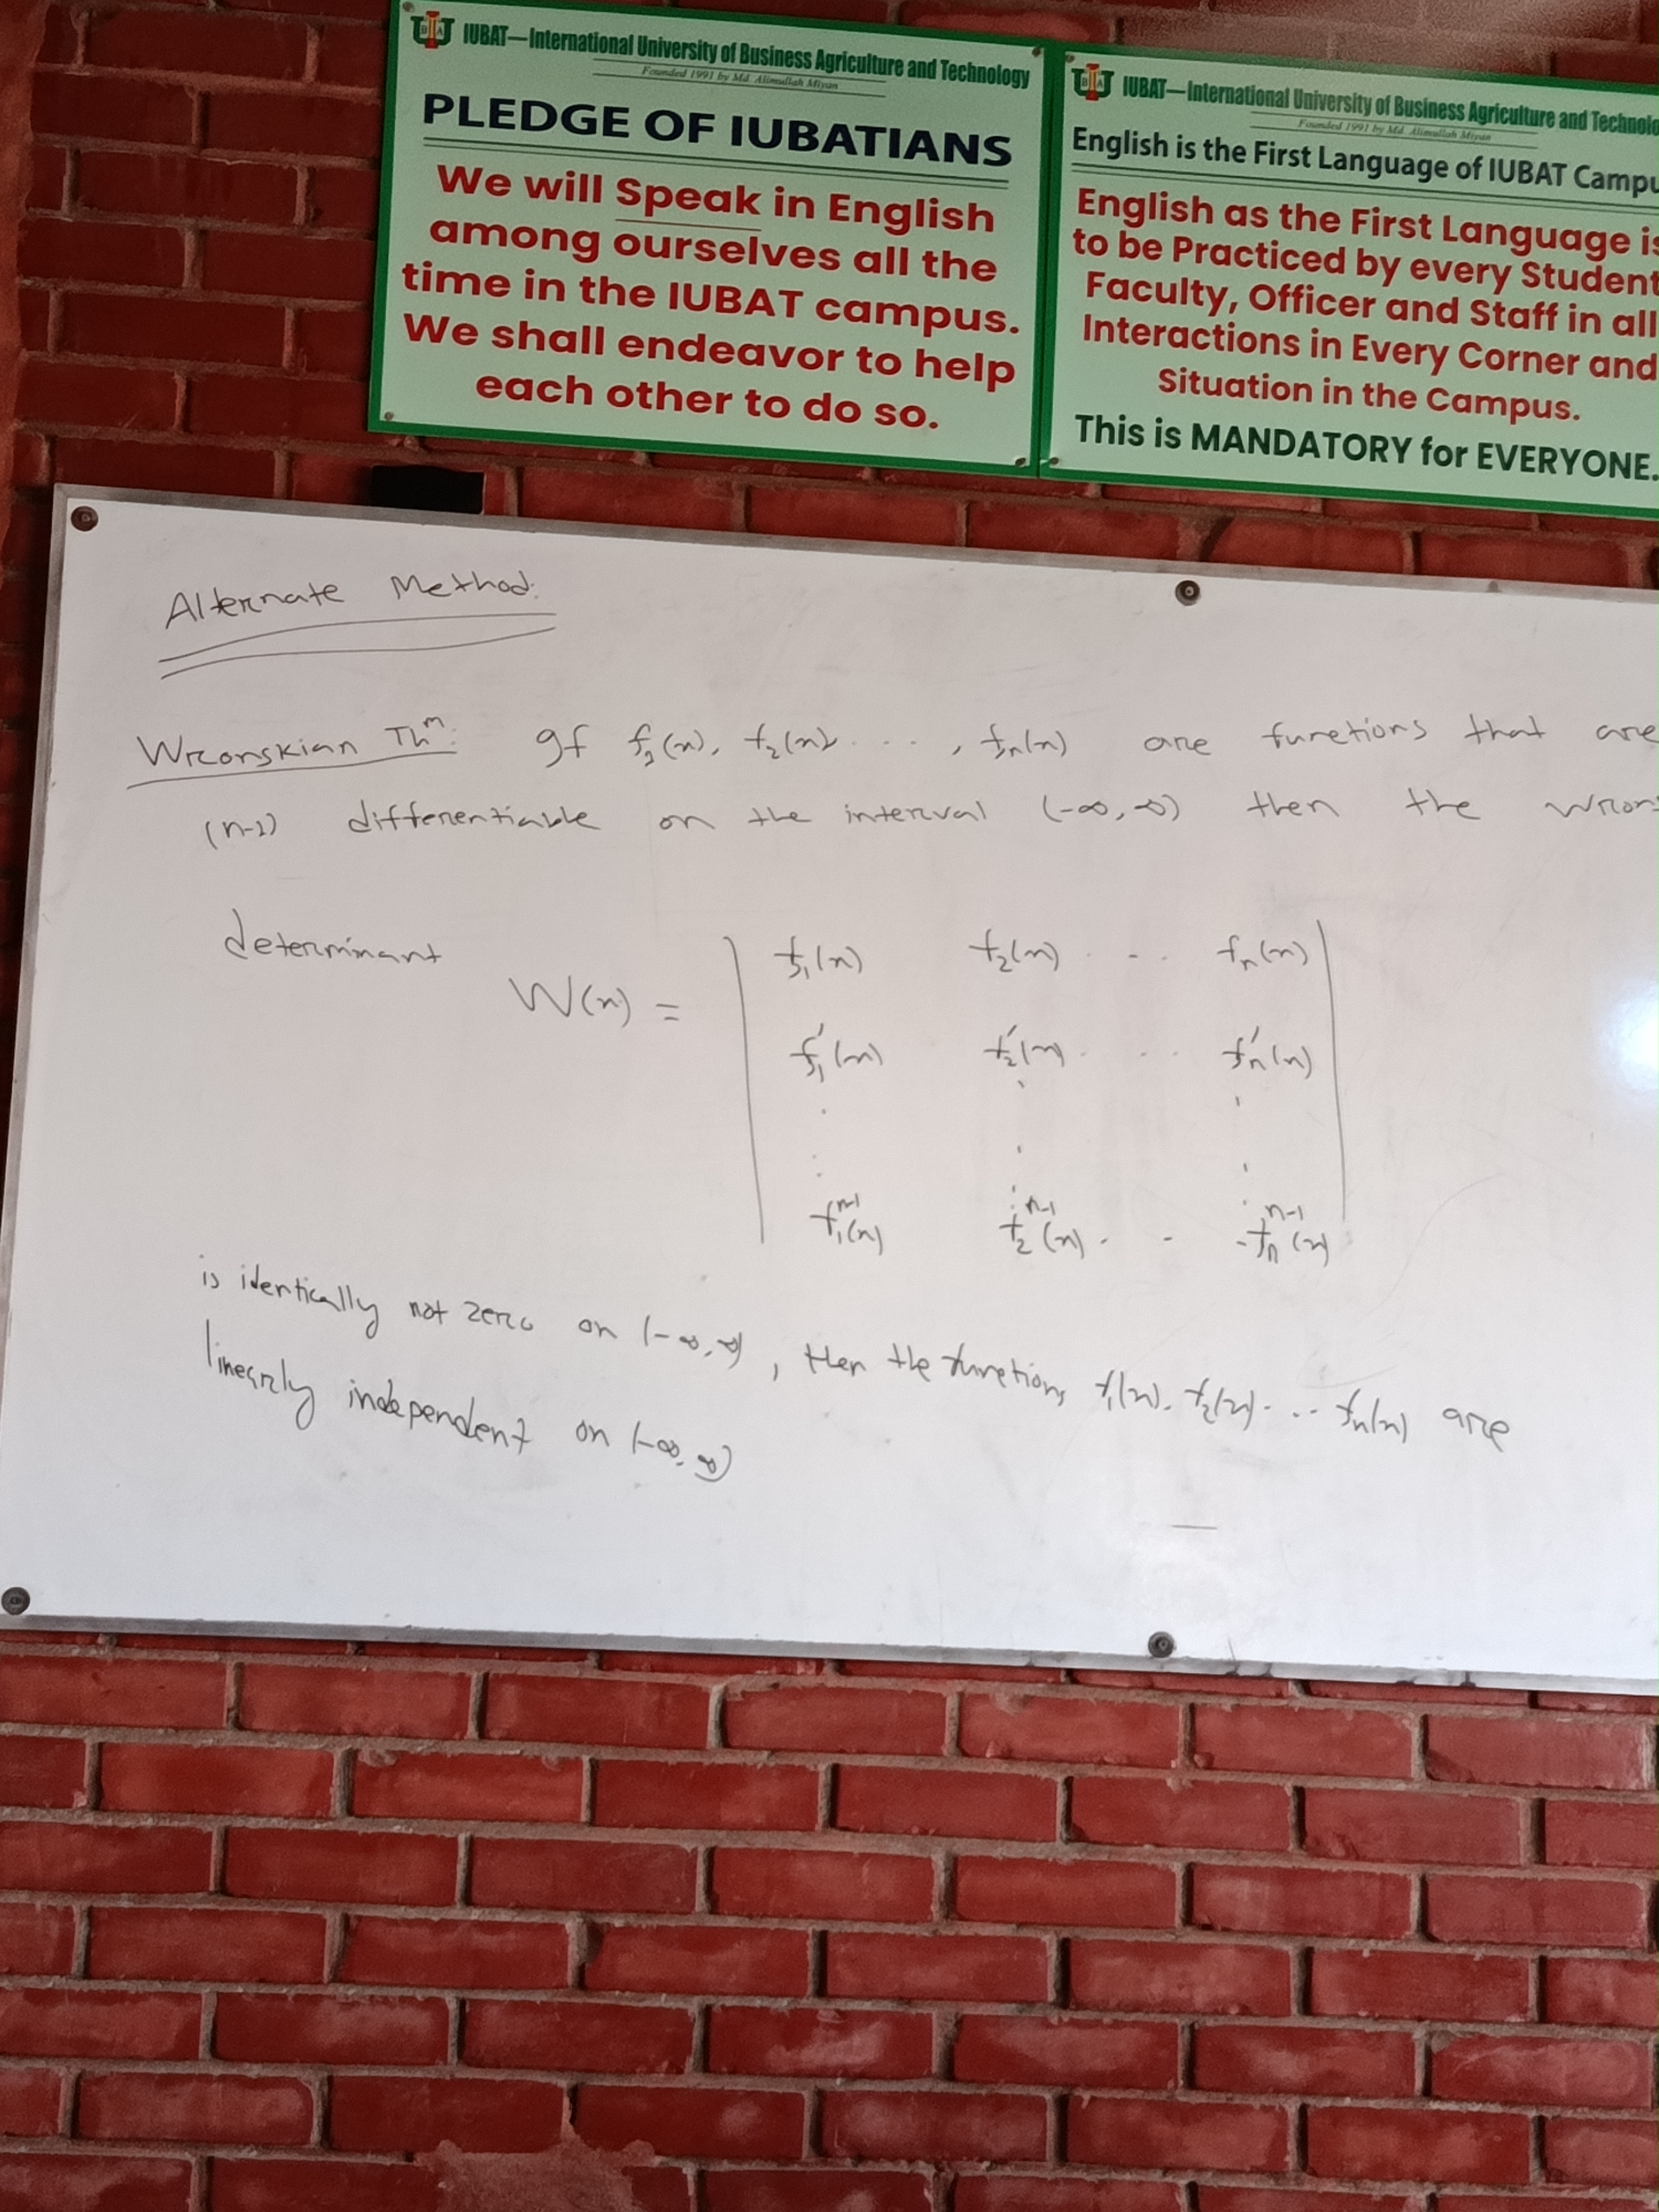 IUBAT—International University of Business Agriculture and Technology
Founded 1991 by Md. Alimullah Miyan
PLEDGE OF IUBATIANS
We will Speak in English
among ourselves all the
time in the IUBAT campus.
We shall endeavor to help
each other to do so.
IUBAT—International University of Business Agriculture and Technolo
Founded 1991 by Md. Alimullah Miyan
English is the First Language of IUBAT Campu
English as the First Language is
to be Practiced by every Student
Faculty, Officer and Staff in all
Interactions in Every Corner and
Situation in the Campus.
This is MANDATORY for EVERYONE.
Alternate Method:
Wronskian Thᵐ: If f₁(x), f₂(x), ..., fₙ(x) are functions that are
(n-1) differentiable on the interval (-∞, ∞) then the Wron
determinant
W(x) =
f₁(x) f₂(x) ... fₙ(x)
f₁′(x) f₂′(x) ... fₙ′(x)
f₁ⁿ⁻¹(x) f₂ⁿ⁻¹(x) ... fₙⁿ⁻¹(x)
is identically not zero on (-∞, ∞), then the functions f₁(x), f₂(x) ... fₙ(x) are
linearly independent on (-∞, ∞)